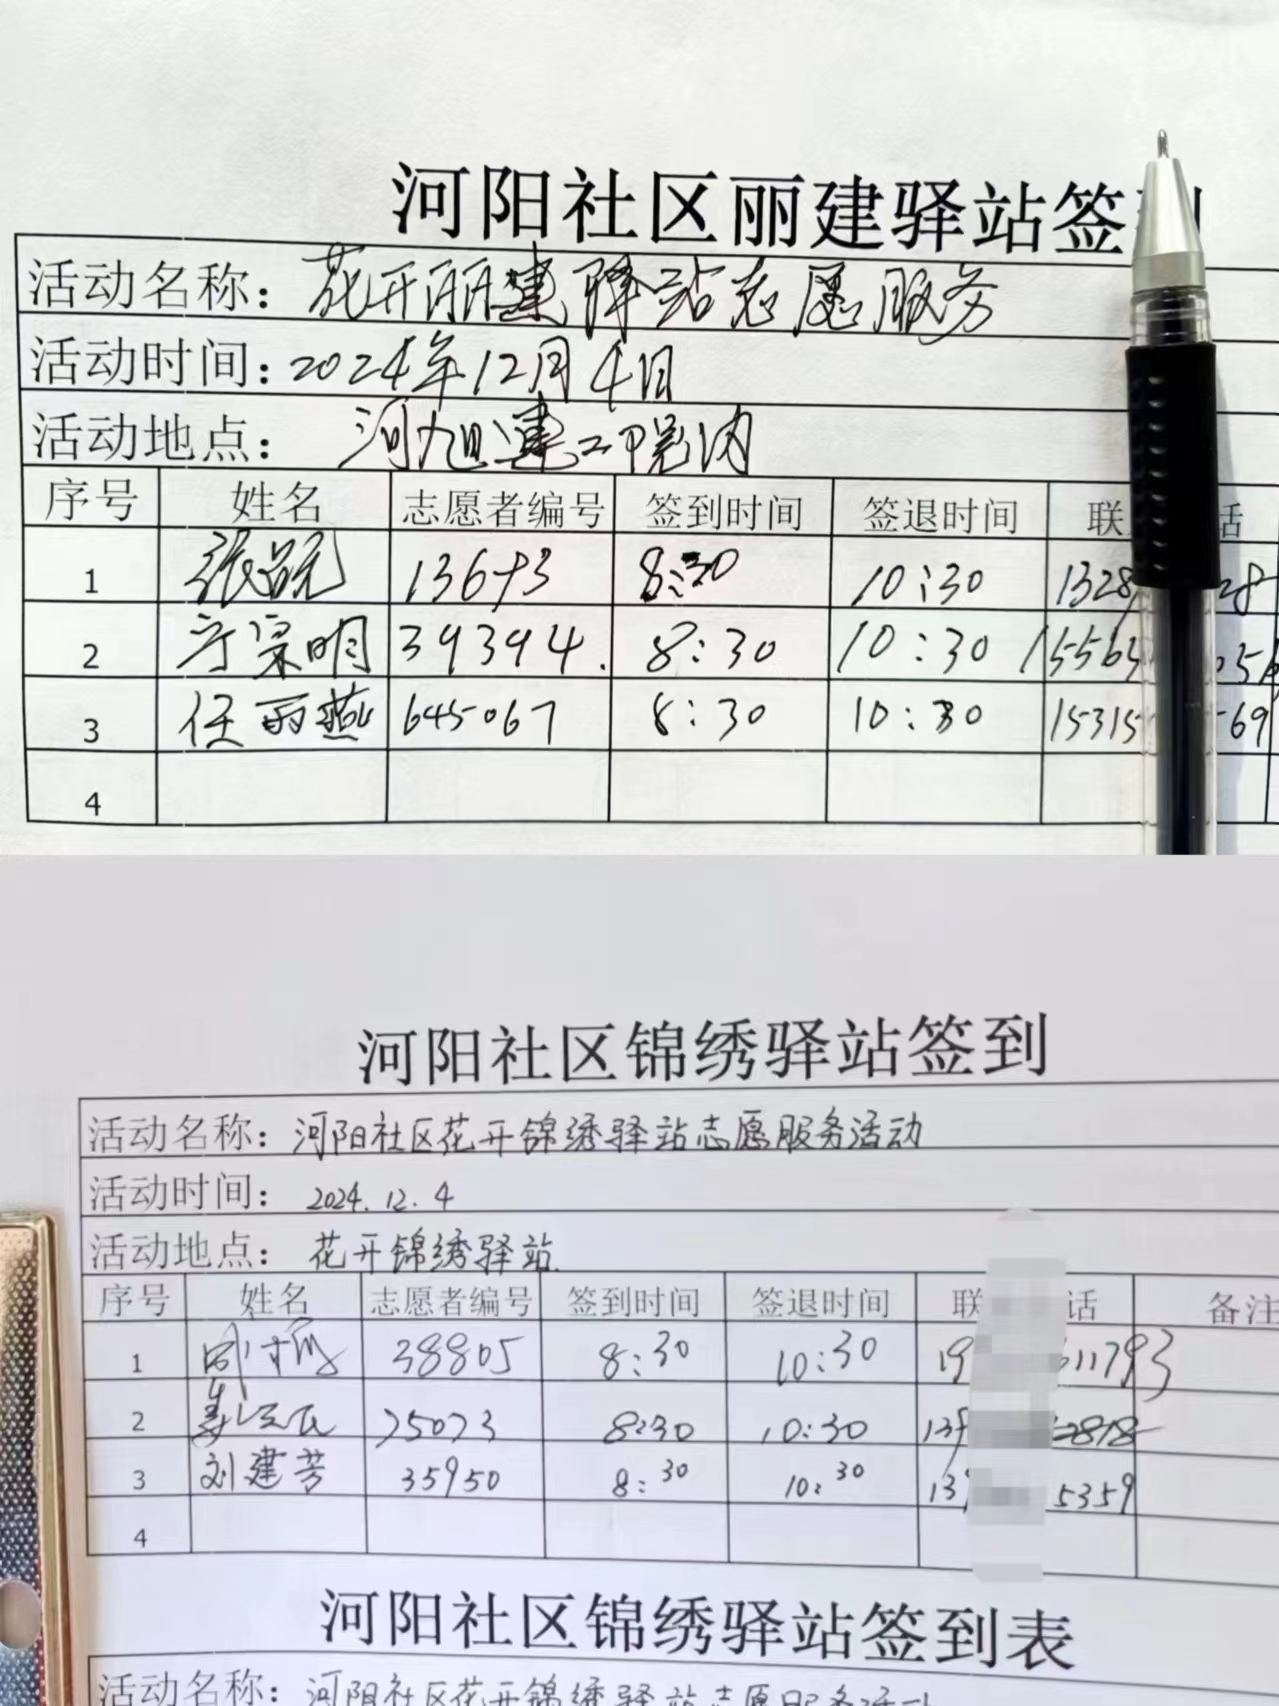 河阳社区丽建驿站签到
活动名称：花开丽建驿站志愿服务
活动时间：2024年12月4日
活动地点：河旭建工院内
序号 姓名 志愿者编号 签到时间 签退时间 联 话
1 13693 8:30 10:30 1328 28
2 宗明 39394. 8:30 10:30 15565 056
3 任丽燕 645067 8:30 10:30 15315 569
4
河阳社区锦绣驿站签到
活动名称：河阳社区花开锦绣驿站志愿服务活动
活动时间：2024.12.4
活动地点：花开锦绣驿站.
序号 姓名 志愿者编号 签到时间 签退时间 联 话 备注
1 38805 8:30 10:30 19 11793
2 75073 8:30 10:30 139 2878
3 刘建芳 35950 8:30 10:30 13 5359
4
河阳社区锦绣驿站签到表
活动名称：河阳社区花开锦绣驿站志愿服务活动